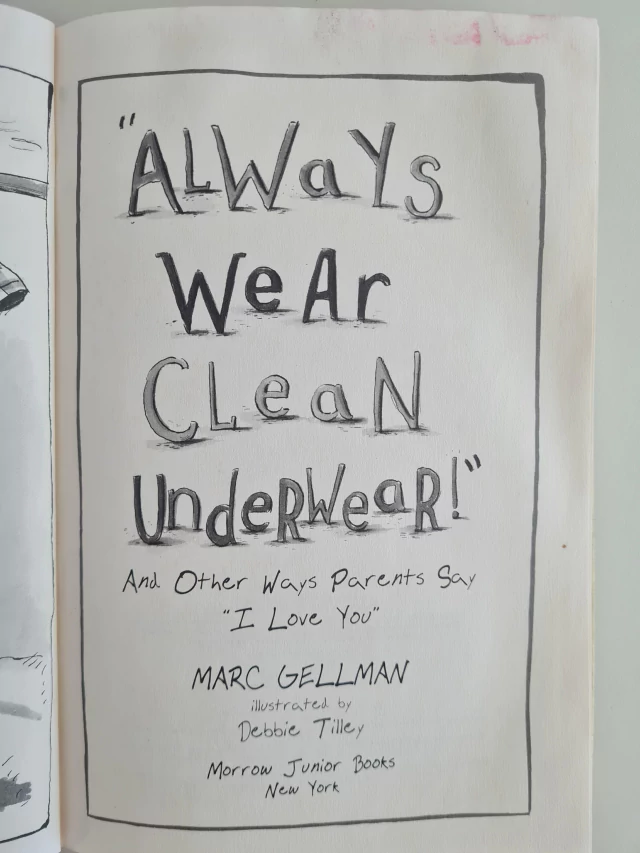 "ALWaYs
WeAr
CLeaN
UndeRWeaR!"
And Other Ways Parents Say
"I Love You"
MARC GELLMAN
illustrated by
Debbie Tilley
Morrow Junior Books
New York